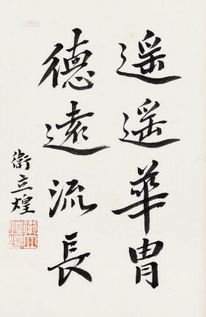 遥遥華胄
德遠流長
衛立煌